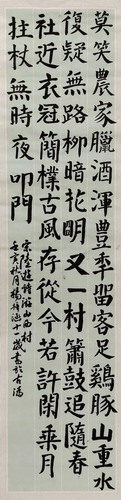 莫笑農家臘酒渾豐秊留客足鷄豚山重水
復疑無路柳暗花明又一村簫鼓追隨春
社近衣冠簡樸古風存從今若許閑乘月
拄杖無時夜叩門
宋陸遊詩游山西村
秋月楊涵十一歲書於古